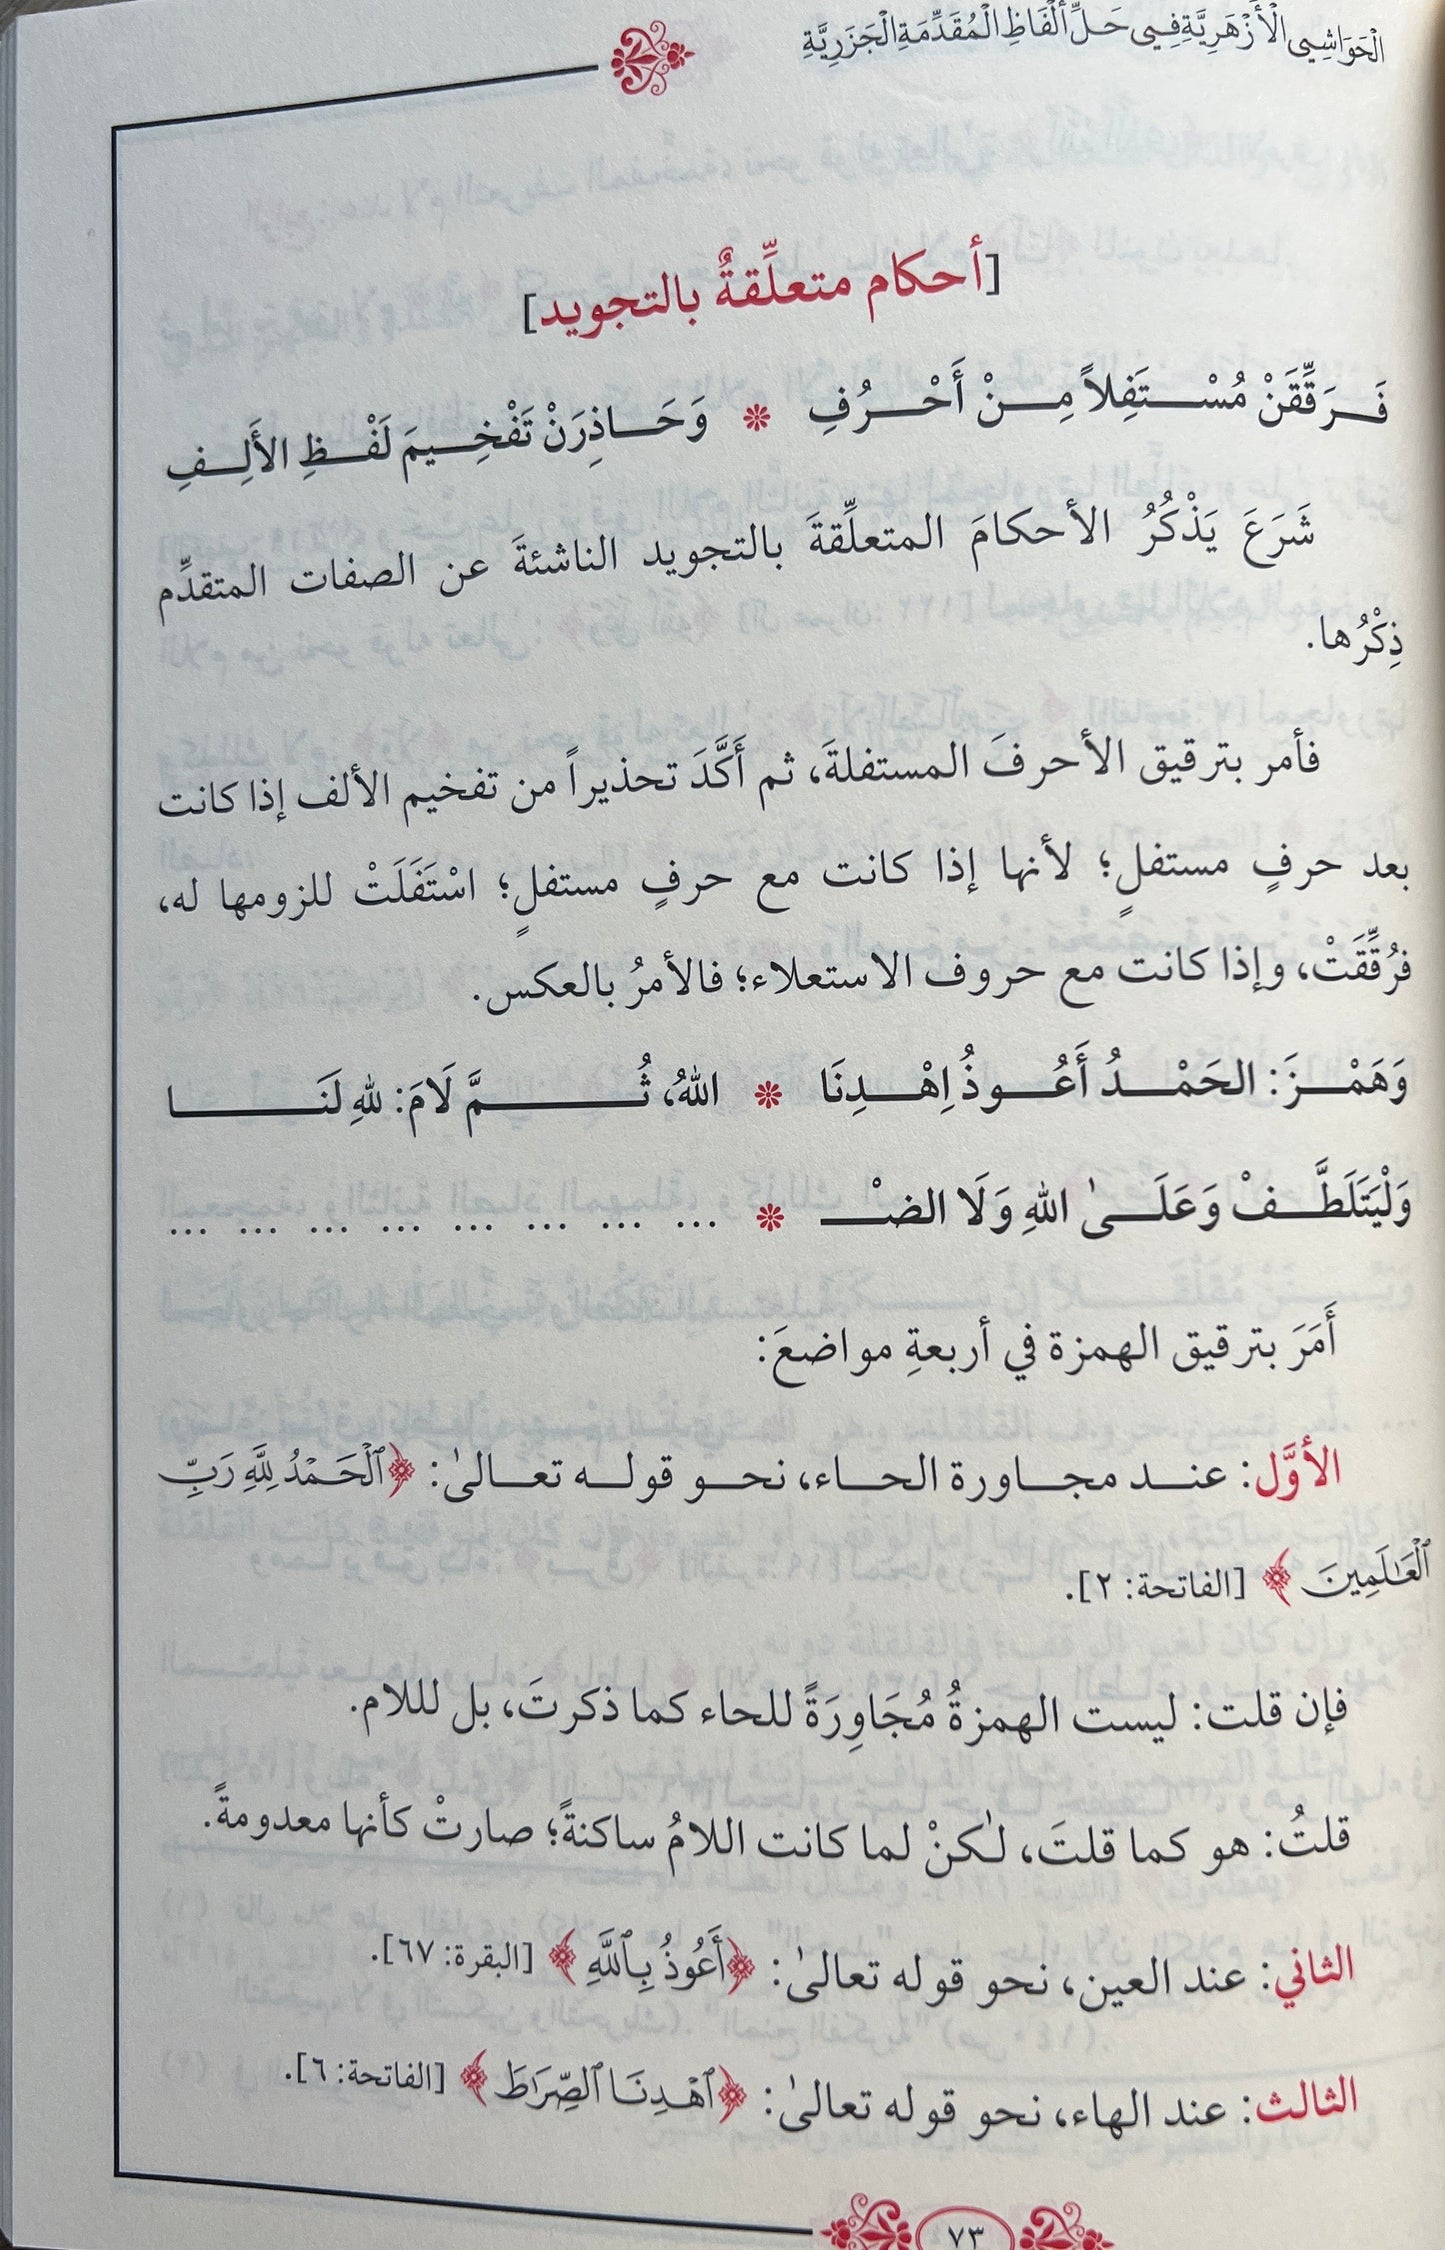 الْحَوَاشِي الْأَزْهَرِيَّةِ فِي حَلِّ أَلْفَاظِ الْمُقَدِّمَةِ الْجَزَرِيَّةِ
[أحكام متعلِّقةٌ بالتجويد]
فَرَقِّقَنْ مُسْتَفِلاً مِنْ أَحْرُفِ * وَحَاذِرَنْ تَفْخِيمَ لَفْظِ الأَلِفِ
شَرَعَ يَذْكُرُ الأحكامَ المتعلِّقةَ بالتجويد الناشئةَ عن الصفات المتقدِّم
ذِكْرُها.
فأمر بترقيق الأحرفَ المستفلةَ، ثم أَكَّدَ تحذيراً من تفخيم الألف إذا كانت
بعد حرفٍ مستفلٍ؛ لأنها إذا كانت مع حرفٍ مستفلٍ؛ اسْتَفَلَتْ للزومها له،
فرُقِّقَتْ، وإذا كانت مع حروف الاستعلاء؛ فالأمرُ بالعكس.
وَهَمْزَ: الحَمْدُ أَعُوذُ اِهْدِنَا * اللهُ، ثُمَّ لَامَ: للهِ لَنَا
وَلْيَتَلَطَّفْ وَعَلَىٰ اللهِ وَلَا الضْـ * ... ... ... ... ... ... ... ...
أَمَرَ بترقيق الهمزة في أربعةِ مواضعَ:
الأوَّل: عند مجاورة الحاء، نحو قوله تعالىٰ: ﴿ٱلْحَمْدُ لِلَّهِ رَبِّ
ٱلْعَـٰلَمِينَ﴾ [الفاتحة: ٢].
فإن قلت: ليست الهمزةُ مُجَاوِرَةً للحاء كما ذكرتَ، بل لللام.
قلتُ: هو كما قلتَ، لـٰكنْ لما كانت اللامُ ساكنةً؛ صارتْ كأنها معدومةً.
الثاني: عند العين، نحو قوله تعالىٰ: ﴿أَعُوذُ بِٱللَّهِ﴾ [البقرة: ٦٧].
الثالث: عند الهاء، نحو قوله تعالىٰ: ﴿ٱهْدِنَا ٱلصِّرَٰطَ﴾ [الفاتحة: ٦].
٧٣